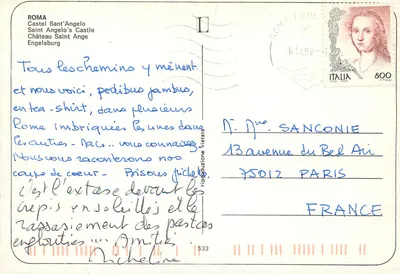 ROMA
Castel Sant'Angelo
Saint Angelo's Castle
Château Saint Ange
Engelsburg
ITALIA
800
Tous les chemins y mènent
et nous voici, pedibus jambus,
en tee-shirt, dans plusieurs
Rome imbriquées les unes dans
les autres - Mais.. vous connaissez
Nous vous raconterons nos
coups de coeur - Bisous
c'est l'extase devant les
crépis ensoleillés et le
rassasiement des pastas
englouties ... Amitiés
Micheline
M. Mme SANCONIE
13 avenue du Bel Air
75012 PARIS
FRANCE
riproduzione vietata
533